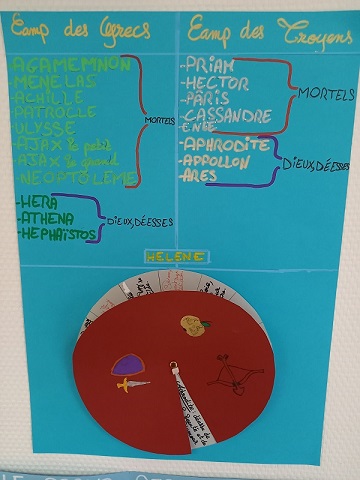 Camp des Grecs
Camp des Troyens
AGAMEMNON
MENELAS
ACHILLE
PATROLLE
ULYSSE
-AJAX le petit
-AJAX le grand
-NEOPTOLEME
MORTELS
-HERA
-ATHENA
-HEPHAÏSTOS
DIEUX,DÉESSES
-PRIAM
-HECTOR
-PÂRIS
-CASSANDRE
ENEE
-APHRODITE
-APPOLLON
-ARES
MORTELS
DIEUX,DÉESSES
HELENE
Aphrodite déesse de